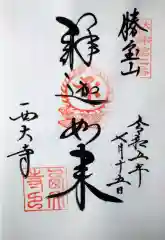 勝宝山
令和五年
七月十五日
釋迦如来
西大寺